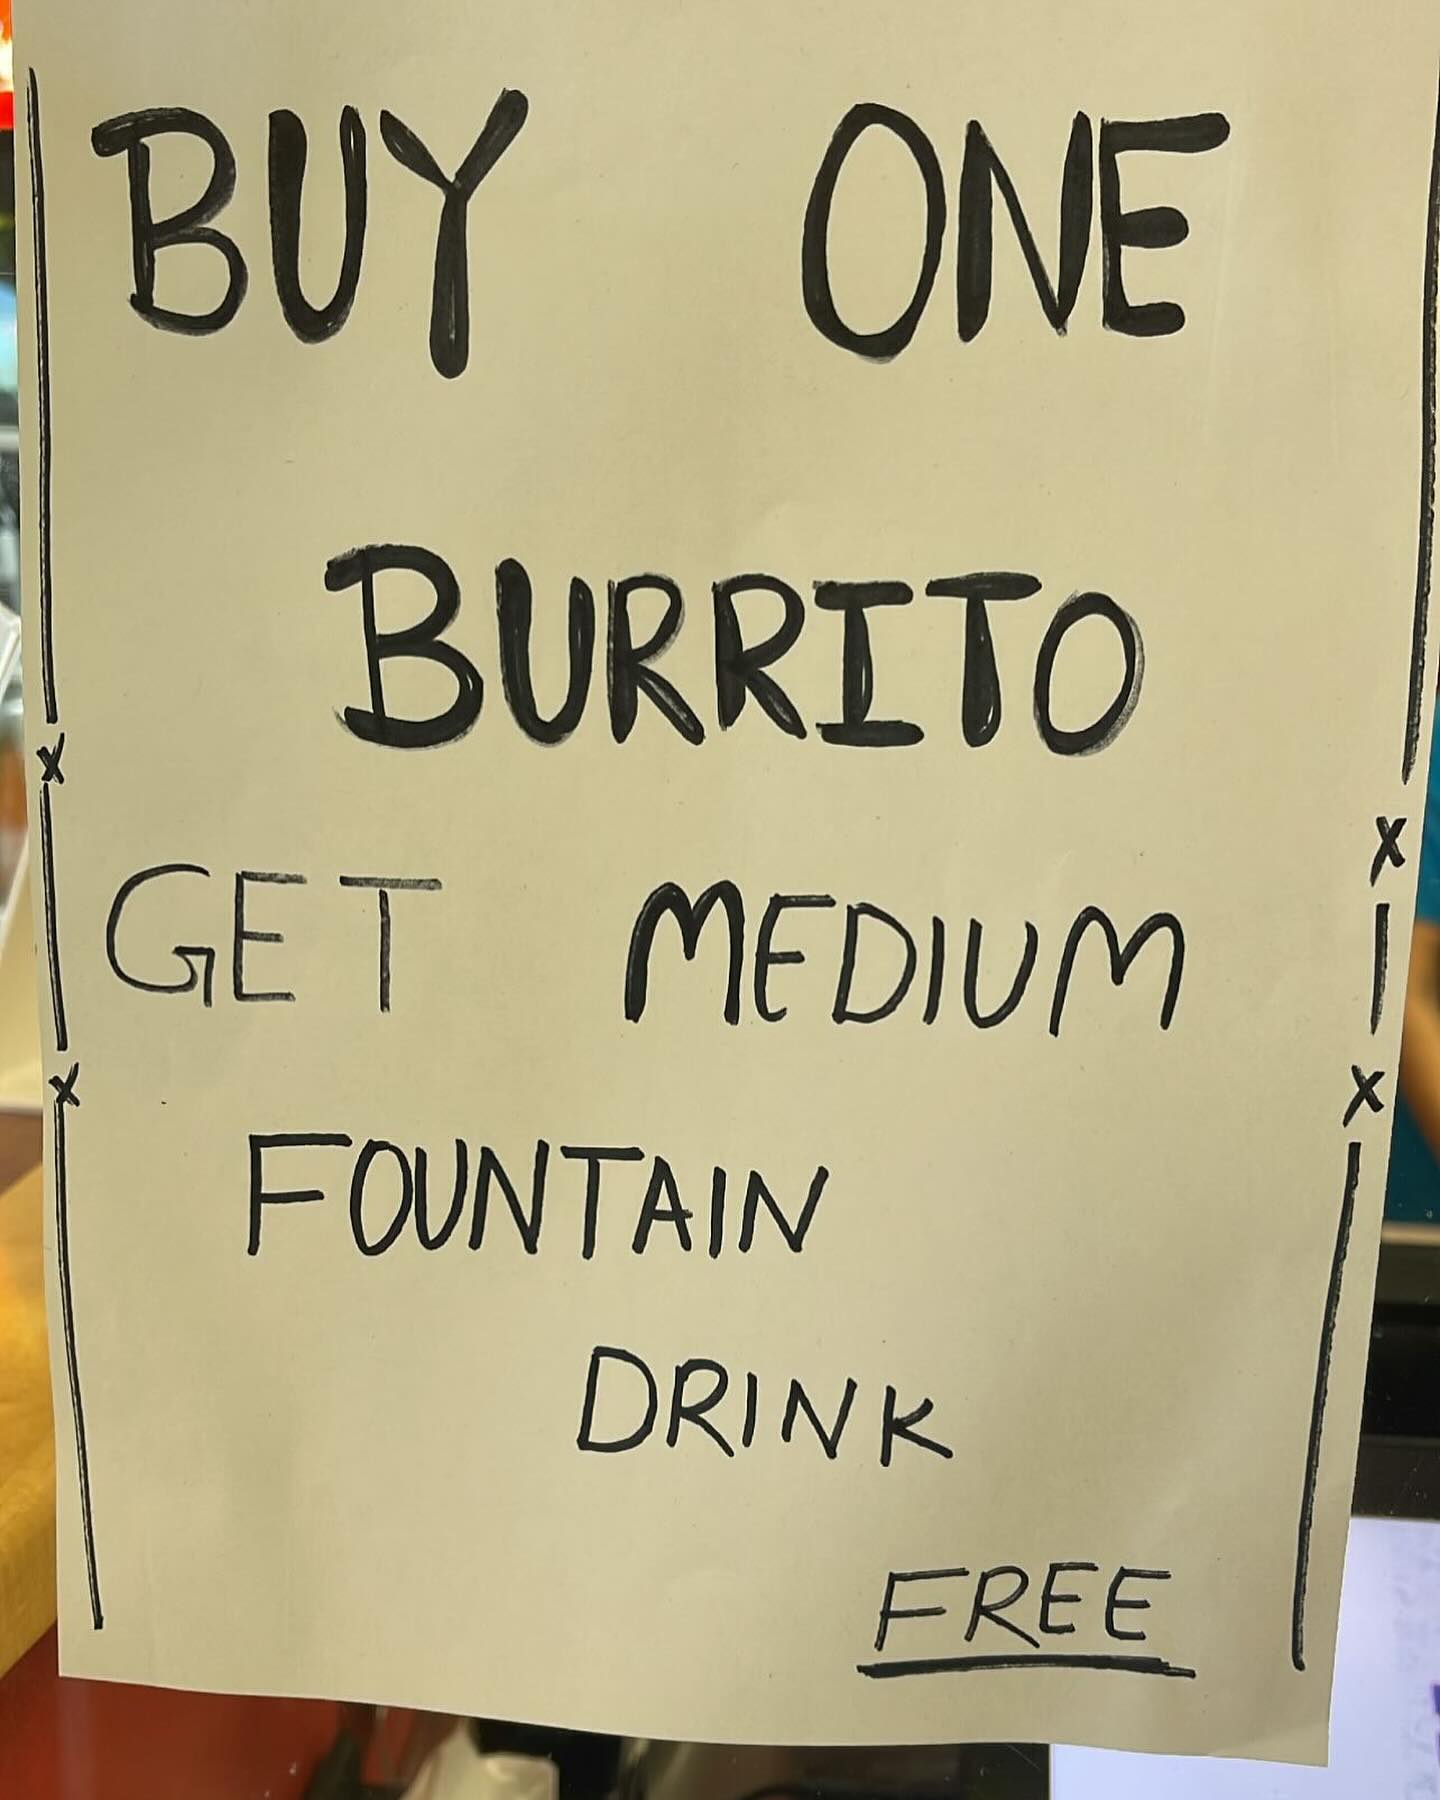 BUY ONE
BURRITO
GET MEDIUM
FOUNTAIN
DRINK
FREE